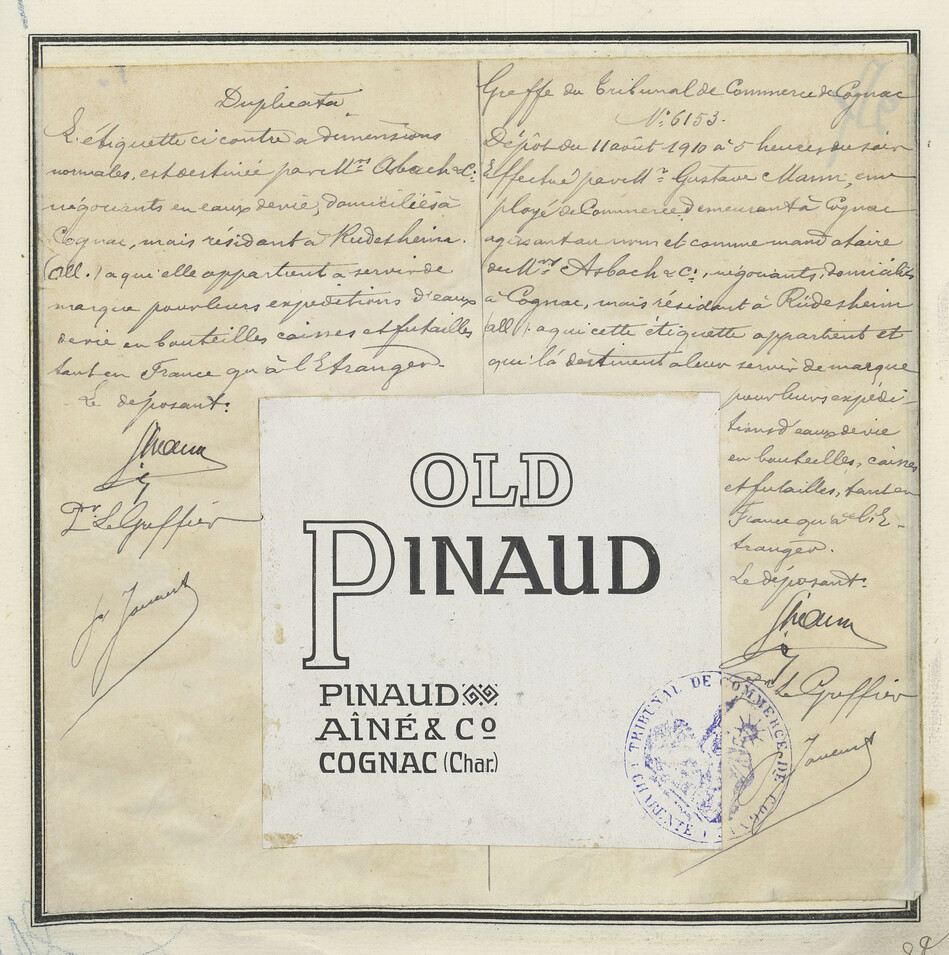 Duplicata
L'étiquette ci contre a dimensions
normales, est destinée par Mrs Asbach & Co
négociants en eaux de vie, domiciliés à
Cognac, mais résidant à Rüdesheim.
(All.) a qu'elle appartient a servir de
marque pour leurs expéditions d'eaux
de vie en bouteilles caisses et futailles
tant en France qu'à l'Etranger.
Le déposant:
GMann
Pr Le Greffier
Greffe du Tribunal de Commerce de Cognac
No 6153.
Dépôt du 11 août 1910 à 5 heures du soir
Effectué par Mr Gustave Mann, em
ployé de Commerce demeurant à Cognac
agissant au nom et comme mandataire
de Mrs Asbach & Co, négociants, domiciliés
à Cognac, mais résidant à Rüdesheim
(all). a qui cette étiquette appartient et
qui la destinent a leur servir de marque
pour leurs expédi-
tions d'eaux de vie
en bouteilles, caisses
et futailles, tant en
France qu'à l'E-
tranger.
Le déposant:
GMann
Le Greffier
OLD
PINAUD
PINAUD
AÎNÉ & Co
COGNAC (Char.)
TRIBUNAL DE COMMERCE DE COGNAC
CHARENTE